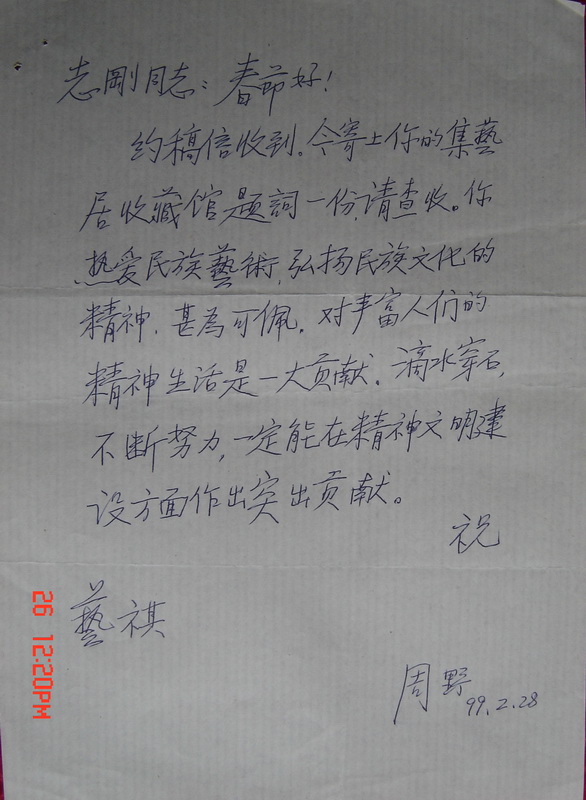 志剛同志：春节好！
约稿信收到。今寄上你的集藝
居收藏馆题詞一份，请查收。你
热爱民族藝術，弘扬民族文化的
精神，甚為可佩。对丰富人们的
精神生活是一大贡献。滴水穿石，
不断努力，一定能在精神文明建
设方面作出突出贡献。
祝
藝祺
周野
99.2.28
26 12:20PM